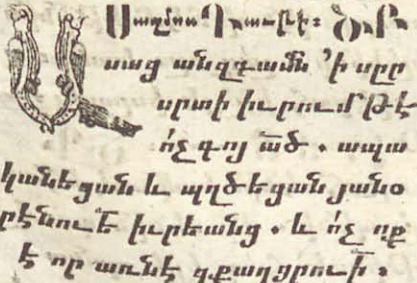 Սաղմոս Դաւթի։ ԾԲ
Ասաց անզգամն ՚ի
սրտի իւրում թէ
ո՛չ գոյ ած . ապա
կանեցան և պղծեցան յանօ
րէնուե իւրեանց . և ո՛չ ոք
է որ առնէ զքաղցրուի .